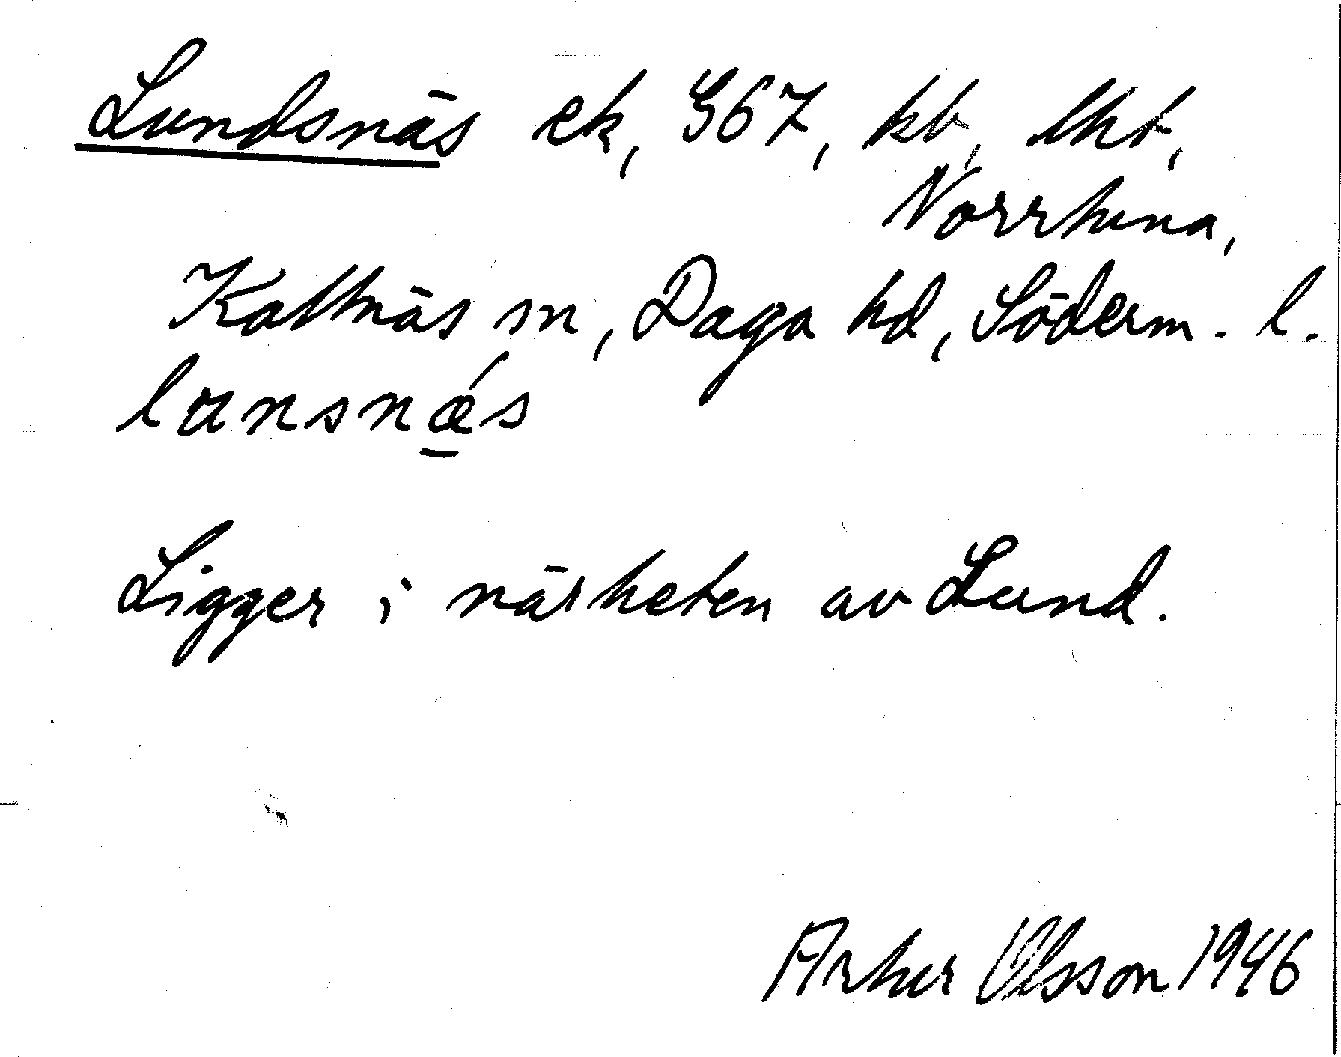 Lundsnäs ek, G67, kb, lht,
Norrhina,
Kattnäs sn, Daga hd, Söderm. l.
lunsnǽs
Ligger i närheten av Lund.
Arthur Olsson 1946